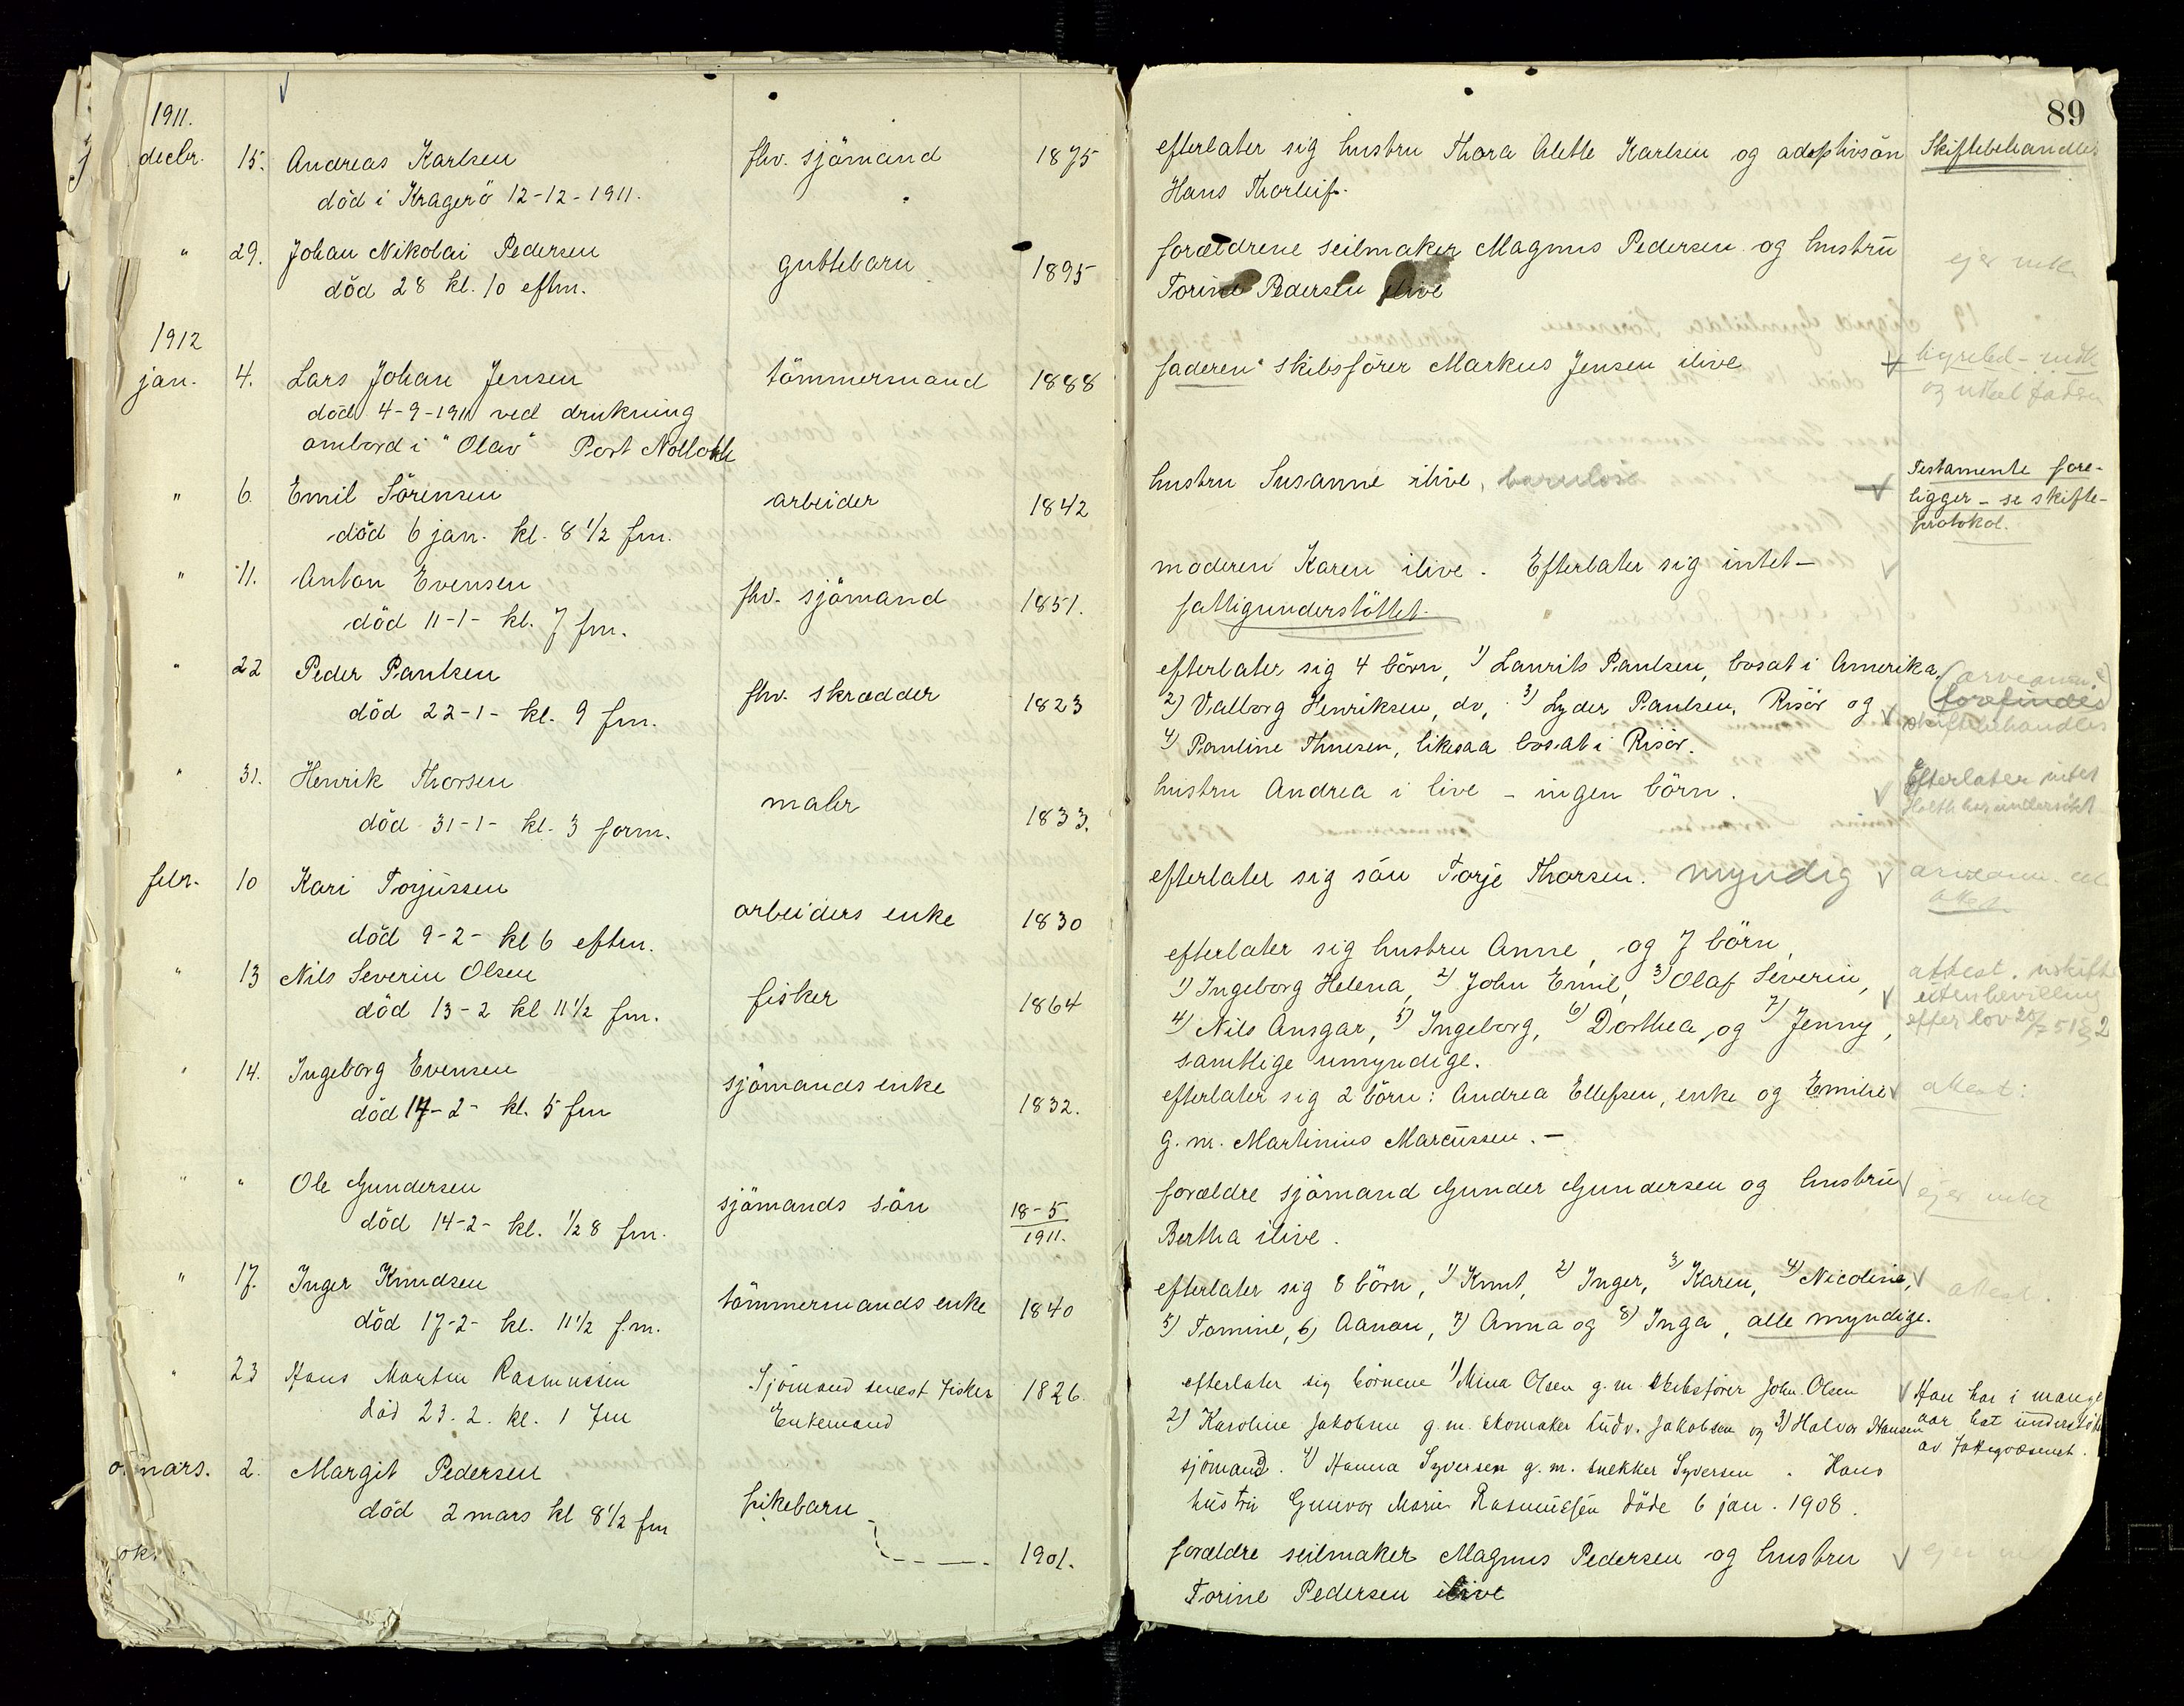 89
1911.
decbr. 15. Andreas Karlsen fhv. sjömand 1875 efterlater sig hustru Thora Alette Karlsen og adoptivsön Skiftebehandles
död i Kragerö 12-12-1911. Hans Thorleif.
" 29. Johan Nikolai Pedersen guttebarn 1895 forældrene seilmaker Magnus Pedersen og hustru eier intet
död 28 kl. 10 eftm. Torine Pedersen ilive
1912
jan. 4. Lars Johan Jensen tömmermand 1888 faderen skibsförer Markus Jensen ilive
död 4-9-1911 ved drukning
ombord i "Olav" Port Nolloth
" 6. Emil Sörensen arbeider 1842 hustru Susanne ilive, barnlöse Testamente fore-
död 6 jan. kl. 8 1/2 fm. ligger - se skifte-
protokol.
" 11. Anton Evensen fhv. sjömand 1851. moderen Karen ilive. Efterlater sig intet-
död 11-1- kl. 7 fm. fattigunderstöttet.
" 22 Peder Paulsen fhv. skrædder 1823 efterlater sig 4 börn, 1) Laurits Paulsen, bosat i Amerika,
död 22-1- kl. 9 fm. 2) Valborg Henriksen, do, 3) Lyder Paulsen, Risör og forefindes
4) Pauline Thuesen, likesaa bosat i Risör. skiftebehandles
" 31. Henrik Thorsen maler 1833. hustru Andrea i live - ingen börn. Efterlater intet
död 31-1- kl. 3 form.
febr. 10 Kari Torjussen arbeiders enke 1830 efterlater sig sön Torje Thorsen. myndig
död 9-2- kl 6 eftm.
" 13 Nils Severin Olsen fisker 1864 efterlater sig hustru Anne, og 7 börn,
död 13-2 kl 11 1/2 fm. 1) Ingeborg Helena, 2) John Emil, 3) Olaf Severin, attest. uskifte
4) Nils Ansgar, 5) Ingeborg, 6) Dorthea, og 7) Jenny, uten bevilling
samtlige umyndige. efter lov
" 14. Ingeborg Evensen sjömands enke 1832. efterlater sig 2 börn: Andrea Ellefsen, enke og Emilie attest:
död 14-2- kl. 5 fm g. m. Martinius Marcussen. -
" " Ole Gundersen sjömands sön 18-5 1911. forældre sjömand Gunder Gundersen og hustru eier intet
död 14-2- kl. 1/2 8 fm. Bertha ilive.
" 17. Inger Knudsen tömmermands enke 1840 efterlater sig 8 börn, 1) Knut, 2) Inger, 3) Karen, 4) Nicoline, attest.
död 17-2- kl. 11 1/2 f.m. 5) Tomine, 6) Aanon, 7) Anna og 8) Inga, alle myndige.
" 23 Hans Martin Rasmussen Sjömand senest fisker 1826 efterlater sig börnene 1) Mina Olsen g. m. skibsförer John Olsen Han har i mange
död 23. 2. kl. 1 fm Enkemand 2) Karoline Jakobsen g. m. skomaker Ludv. Jakobsen og 3) Halvor Hansen aar hat understöt
sjömand. 4) Hanna Syversen g. m. snekker Syversen. Hans av fattigvæsenet.
hustru Gunvor Marie Rasmussen döde 6 jan. 1908.
mars. 2. Margit Pedersen pikebarn 1901. forældre seilmaker Magnus Pedersen og hustru
död 2 mars kl 8 1/2 fm Torine Pedersen ilive
ok.